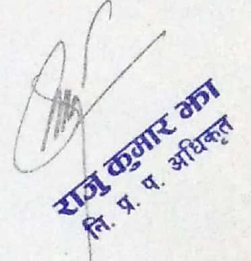 राजु कुमार झा
नि. प्र. प. अधिकृत